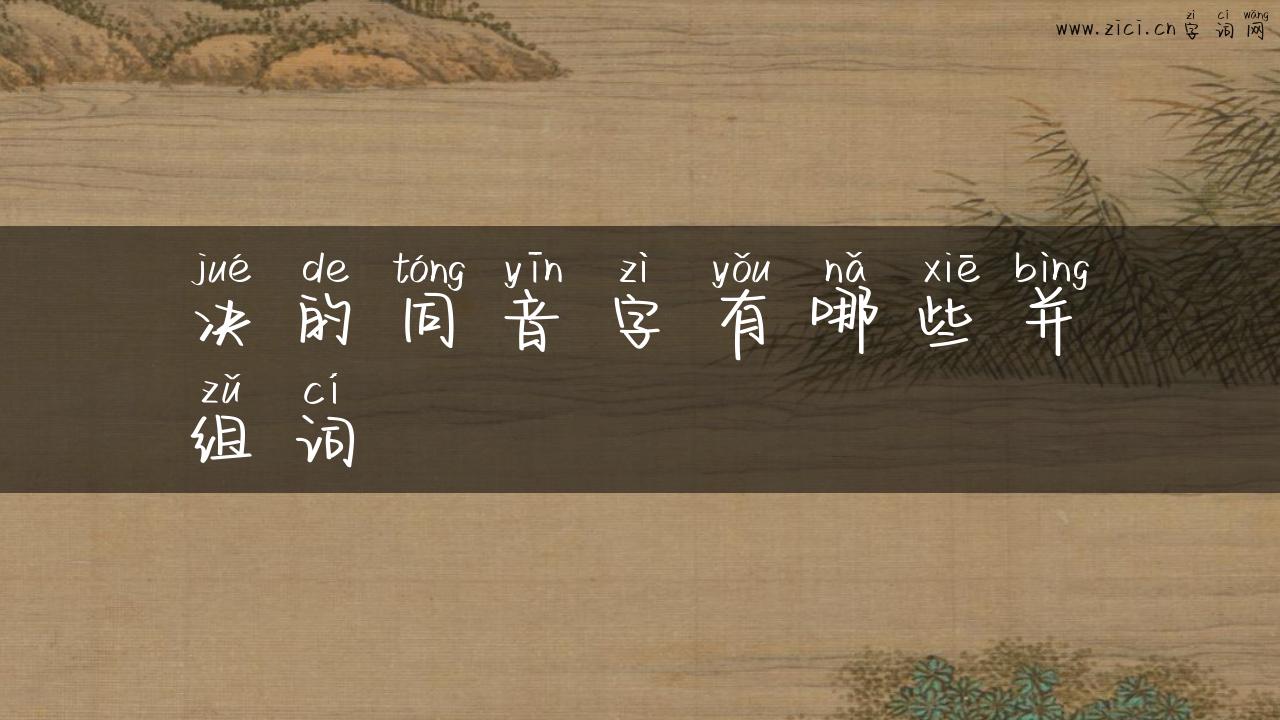 zì cí wǎng
www.zici.cn 字词网
jué de tóng yīn zì yǒu nǎ xiē bìng
决的同音字有哪些并
zǔ cí
组词